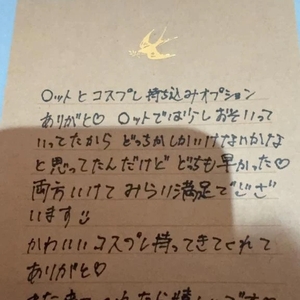 〇ットとコスプレ持ち込みオプション
ありがと♡ 〇ットでは少しおそいって
いってたから どっちかしかいけないかな
と思ってたんだけど どちも早かった♡
両方いけて みらい満足でござ
います
かわいいコスプレ持ってきてくれて
ありがと♡